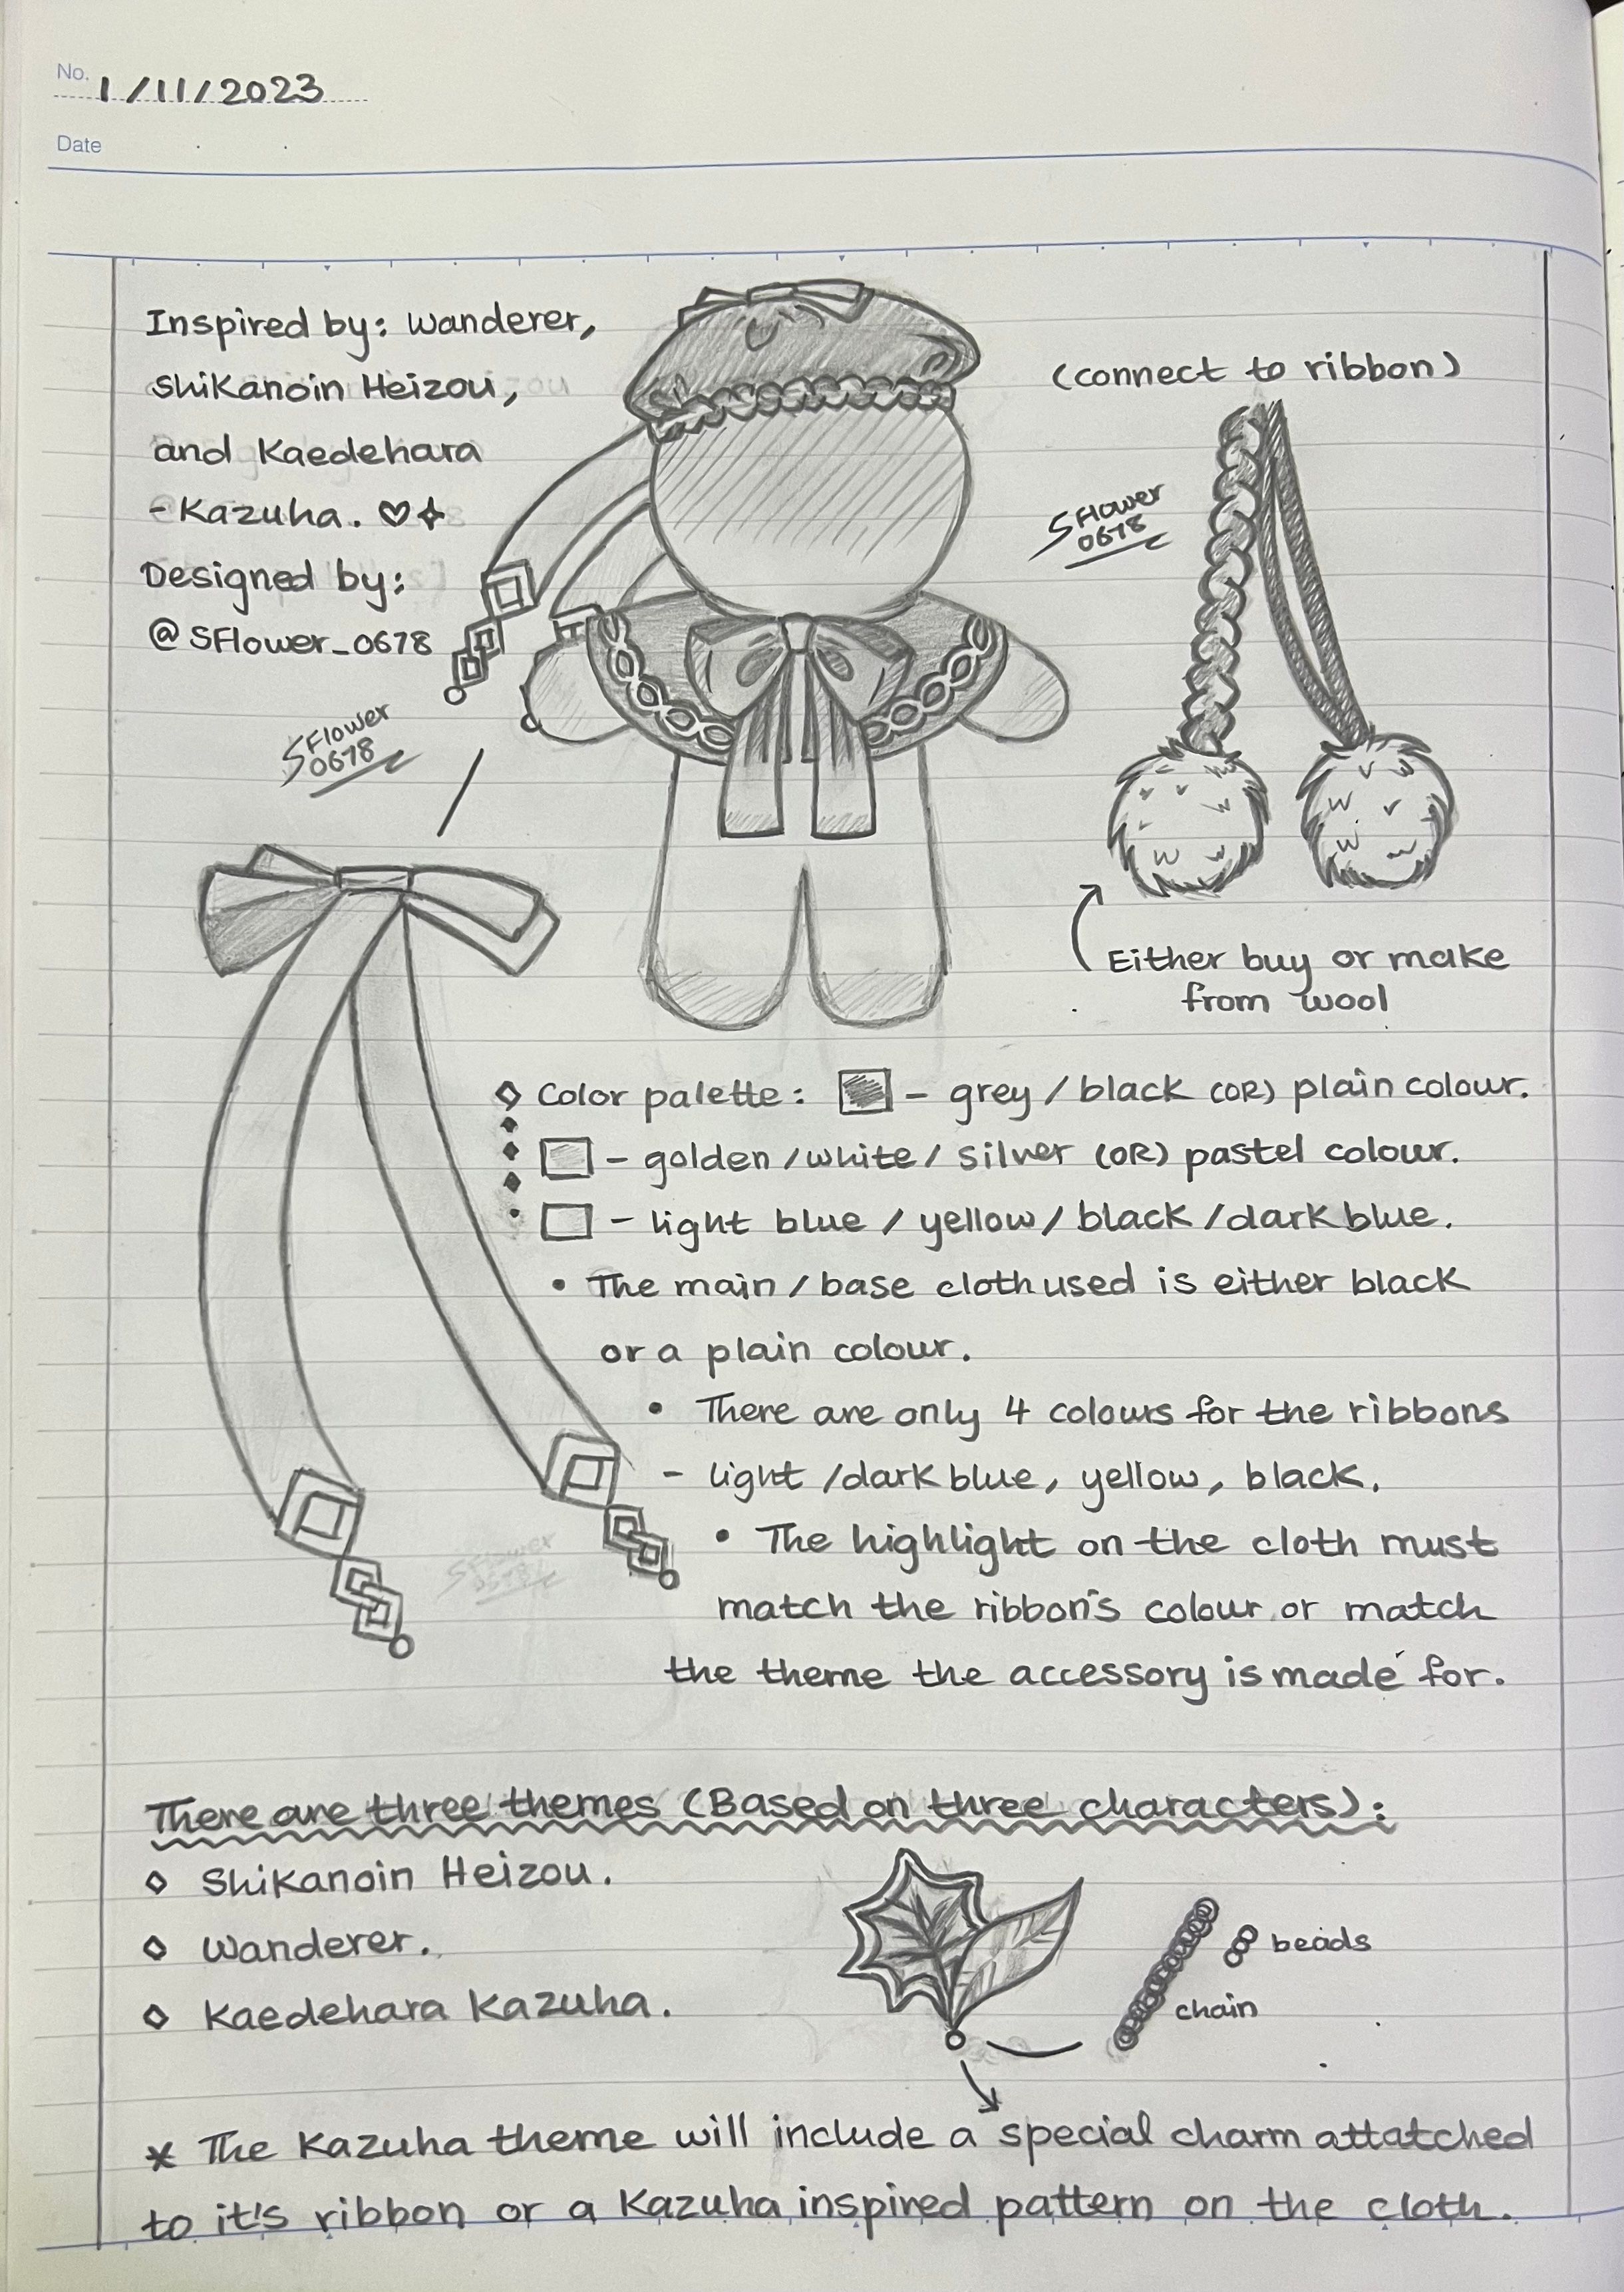 No. 1/11/2023
Date
Inspired by: Wanderer,
Shikanoin Heizou,
and Kaedehara
-Kazuha. ♡✧
Designed by:
@SFlower_0678
SFlower
0678
(connect to ribbon)
SFlower
0678
Either buy or make
from wool
Color palette: - grey / black (OR) plain colour.
- golden / white / silver (OR) pastel colour.
- light blue / yellow / black / dark blue.
• The main / base cloth used is either black
or a plain colour.
• There are only 4 colours for the ribbons
- light / dark blue, yellow, black.
• The highlight on the cloth must
match the ribbon's colour or match
the theme the accessory is made for.
SFlower
0678
There are three themes (Based on three characters):
◇ Shikanoin Heizou.
◇ Wanderer.
◇ Kaedehara Kazuha.
beads
chain
* The Kazuha theme will include a special charm attatched
to it's ribbon or a Kazuha inspired pattern on the cloth.